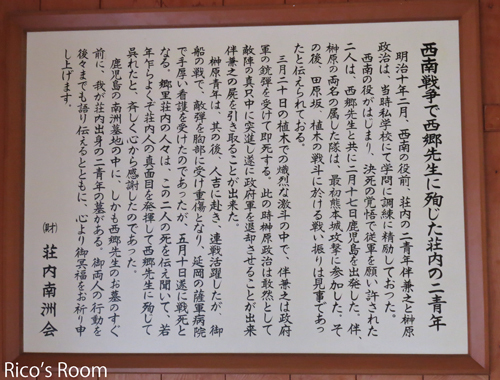 西南戦争で西郷先生に殉じた荘内の二青年
明治十年二月、西南の役前、荘内の二青年伴兼之と榊原
政治は、当時私学校にて学問に訓練に精励しておった。
西南の役がはじまり、決死の覚悟で従軍を願い許された
二人は、西郷先生と共に二月十七日鹿児島を出発した。伴、
榊原の両名の属した隊は、最初熊本城攻撃に参加した。そ
の後、田原坂、植木の戦斗に於ける戦い振りは見事であっ
たと伝えられておる。
三月二十日の植木での熾烈な激斗の中で、伴兼之は政府
軍の銃弾を受けて即死する。此の時榊原政治は敢然として
敵陣の真只中に突進し遂に政府軍を退却させることが出来
伴兼之の屍を引き取ることが出来た。
榊原青年は、其の後、人吉に赴き、連戦活躍したが、御
船の戦で、敵弾を胸部に受け重傷となり、延岡の薩軍病院
で手厚い看護を受けたのであったが、五月十日遂に戦死と
なる。郷里荘内の人々は、この二人の死を伝え聞いて、若
年乍らよくぞ荘内人の真面目を発揮して西郷先生に殉して
呉れたと、斉しく心から感謝したのであった。
鹿児島の南洲墓地の中に、しかも西郷先生のお墓のすぐ
前に、我が荘内出身の二青年の墓がある。御両人の行動を
後々までも語り伝えるとともに、心より御冥福をお祈り申
し上げます。
(財) 荘内南洲会
Rico's Room